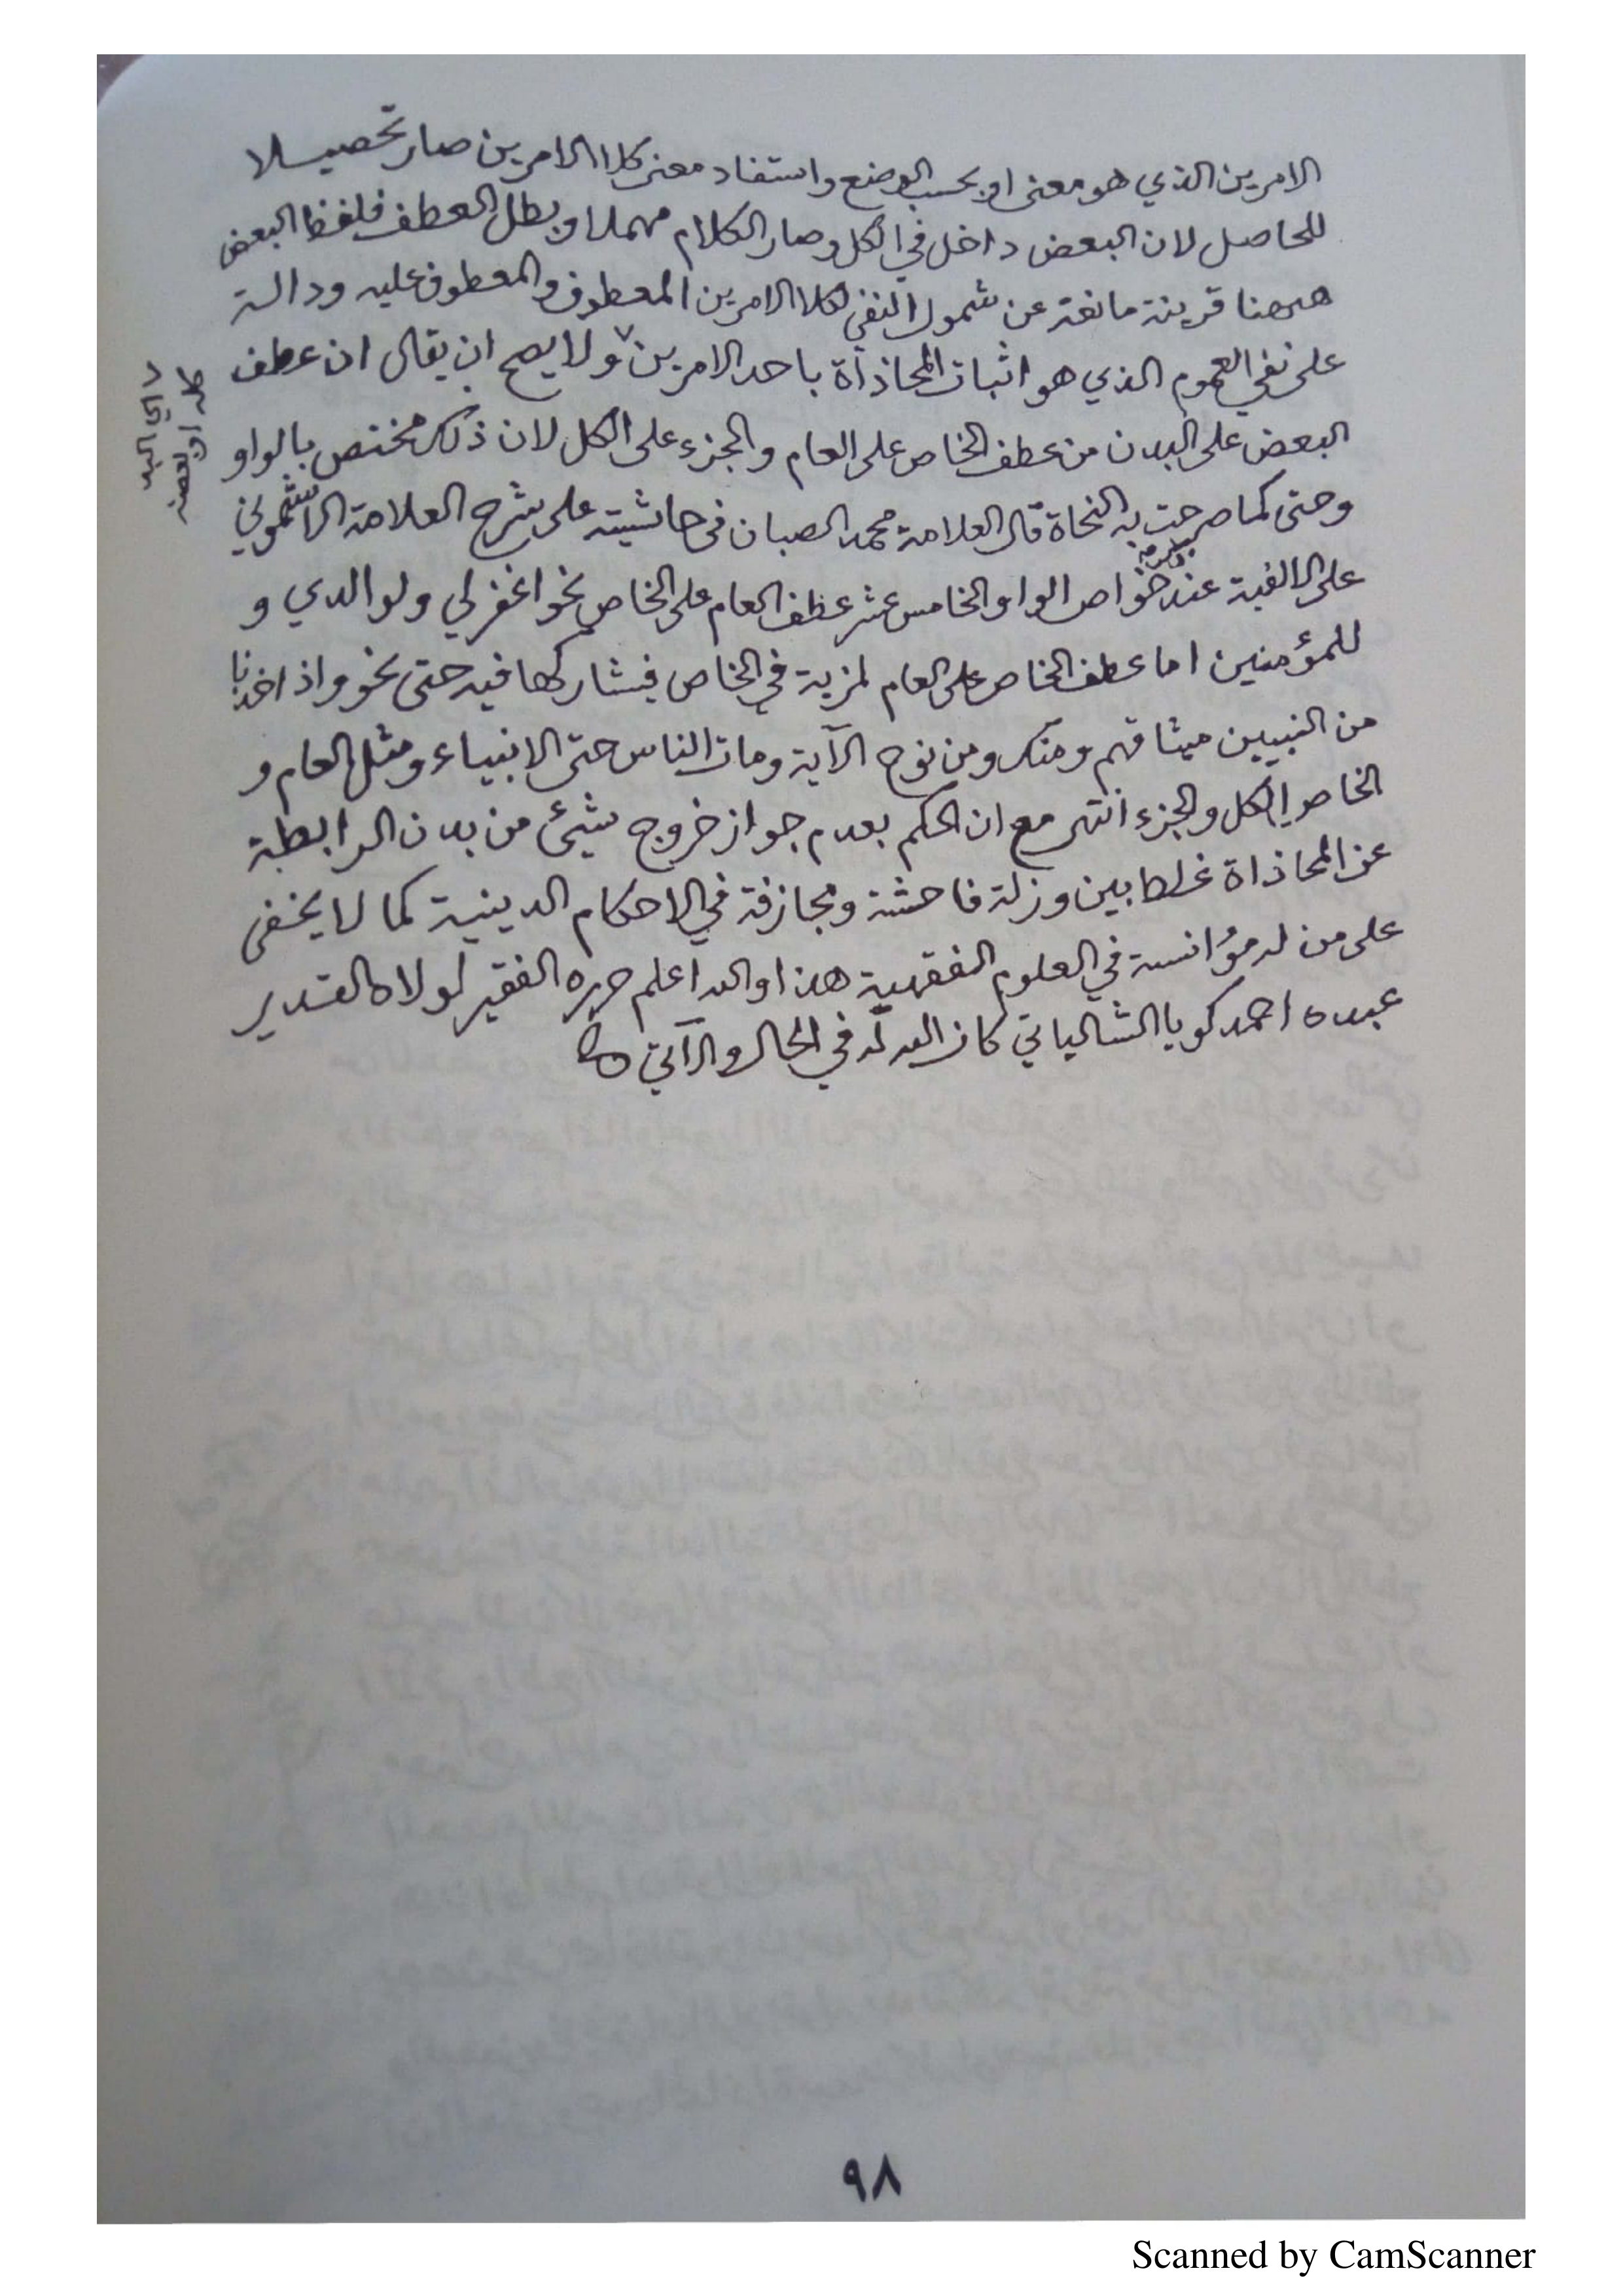 الامرين الذي هو معنى او بحسب الوضع واستفاد معنى كلا الامرين صار تحصيلا
للحاصل لان البعض داخل في الكل وصار الكلام مهملا وبطل العطف فلفظ البعض
ههنا قرينة مانعة عن شمول النفي لكلا الامرين المعطوف والمعطوف عليه ودالة
على نفي العموم الذي هو اثبات المحاذاة باحد الامرين ٧ ولا يصح ان يقال ان عطف
٧ اي البد
كله او بعضه
البعض على البدن من عطف الخاص على العام والجزء على الكل لان ذلك مختص بالواو
وحتى كما صرحت به النحاة قال العلامة محمد الصبان في حاشيته على شرح العلامة الاشموني
على الالفية عند خواص الواو والخامس عشر عطف العام على الخاص نحو اغفر لي ولوالدي و
للمؤمنين اما عطف الخاص على العام لمزية في الخاص فيشاركها فيه حتى نحو واذ اخذنا
من النبيين ميثاقهم ومنك ومن نوح الآية ومات الناس حتى الانبياء ومثل العام و
الخاص الكل والجزء انتهى مع ان الحكم بعدم جواز خروج شيئ من بدن الرابطة
عن المحاذاة غلط بين وزلة فاحشة ومجازفة في الاحكام الدينية كما لا يخفى
على من له مؤانسة في العلوم الفقهية هذا والله اعلم حرره الفقير لمولاه القدير
عبده احمد كويا الشالياتي كان الله له في الحال والآتي
٩٨
Scanned by CamScanner